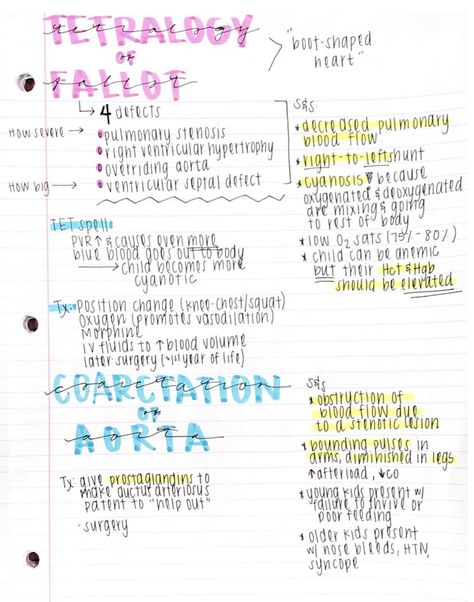 TETRALOGY
OF
FALLOT
"boot-shaped
heart"
↳ 4 defects
How severe → • pulmonary stenosis
• right ventricular hypertrophy
• overriding aorta
How big → • ventricular septal defect
S&S
* decreased pulmonary
blood flow
* right-to-left shunt
* cyanosis because
oxygenated & deoxygenated
are mixing & going
to rest of body
* low O2 sats (75%-80%)
* child can be anemic
but their Hct & Hgb
should be elevated
TET spell
PVR↑ & causes even more
blue blood goes out to body
→ child becomes more
cyanotic
Tx: Position change (knee-chest/squat)
Oxygen (promotes vasodilation)
Morphine
IV fluids to ↑ blood volume
later surgery (~1st year of life)
COARCTATION
OF
AORTA
Tx: give prostaglandins to
make ductus arteriosus
patent to "help out"
· surgery
S&S
* obstruction of
blood flow due
to a stenotic lesion
* bounding pulses in
arms, diminished in legs
↑ afterload, ↓CO
* young kids present w/
failure to thrive or
poor feeding
* older kids present
w/ nose bleeds, HTN,
syncope